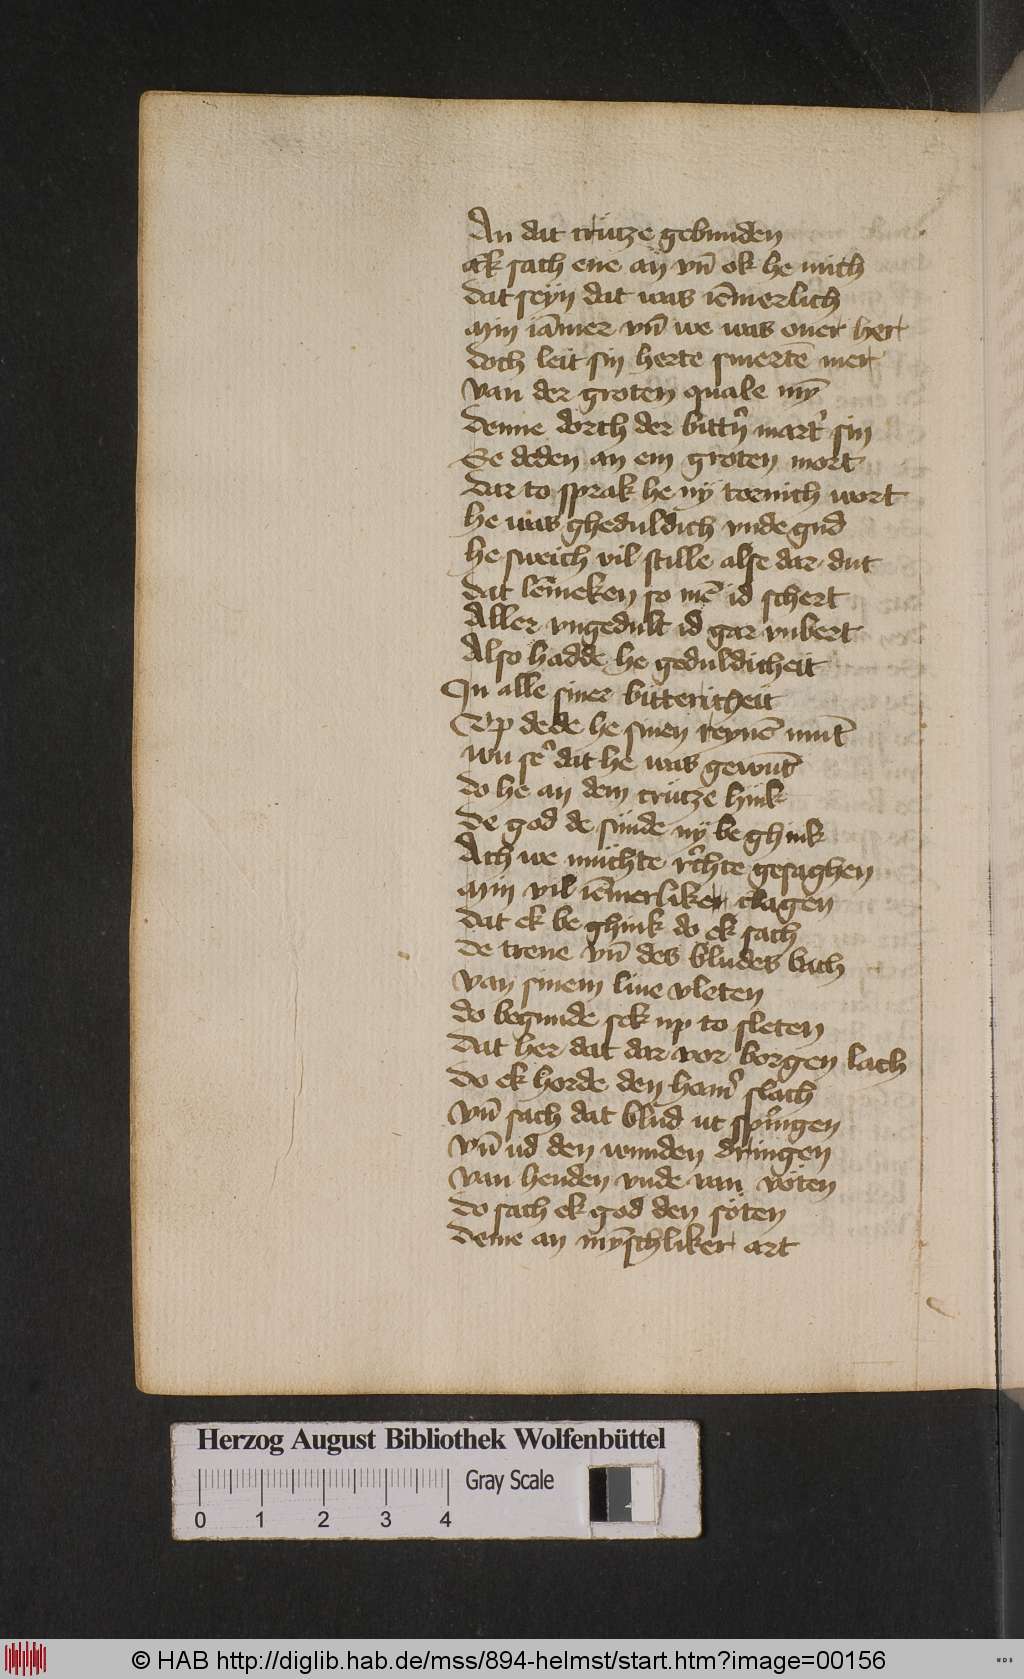 An dat crütze gebunden
ek sach ene an vn̄ ok he mich
dat seyn dat was iēmerlich
myn iāmer vn̄ we was ouer her
doch leit sin herte smertē mer
van der groten quale myn̄
denne dorch der bittern mart' sin
Se deden an em groten mort
dar to sprak he ny tornich wort
he was gheduldich vnde gud
he sweich vil stille alse dar dut
dat lēmeken so mē id schert
Aller vngedult id gar vnbert
Also hadde he geduldicheit
In alle siner bittericheit
Vp dede he sinen reynē munt
wu se' dat he was gewunt
do he an dem crütze hink
de god de sünde ny be ghink
Ach we müchte rechte gesaghen
myn vil iēmerliker clagen
dat ek be ghink do ek sach
de trene vn̄ des bludes bach
van sinem liue vleten
do begunde sek up to sleten
dat her dat dar vor borgen lach
do ek horde den ham' slach
vn̄ sach dat blud ut springen
vn̄ ud den wunden dringen
van henden vnde van vöten
do sach ek god den söten
denne an mynschliker art
Herzog August Bibliothek Wolfenbüttel
Gray Scale
0 1 2 3 4
© HAB http://diglib.hab.de/mss/894-helmst/start.htm?image=00156